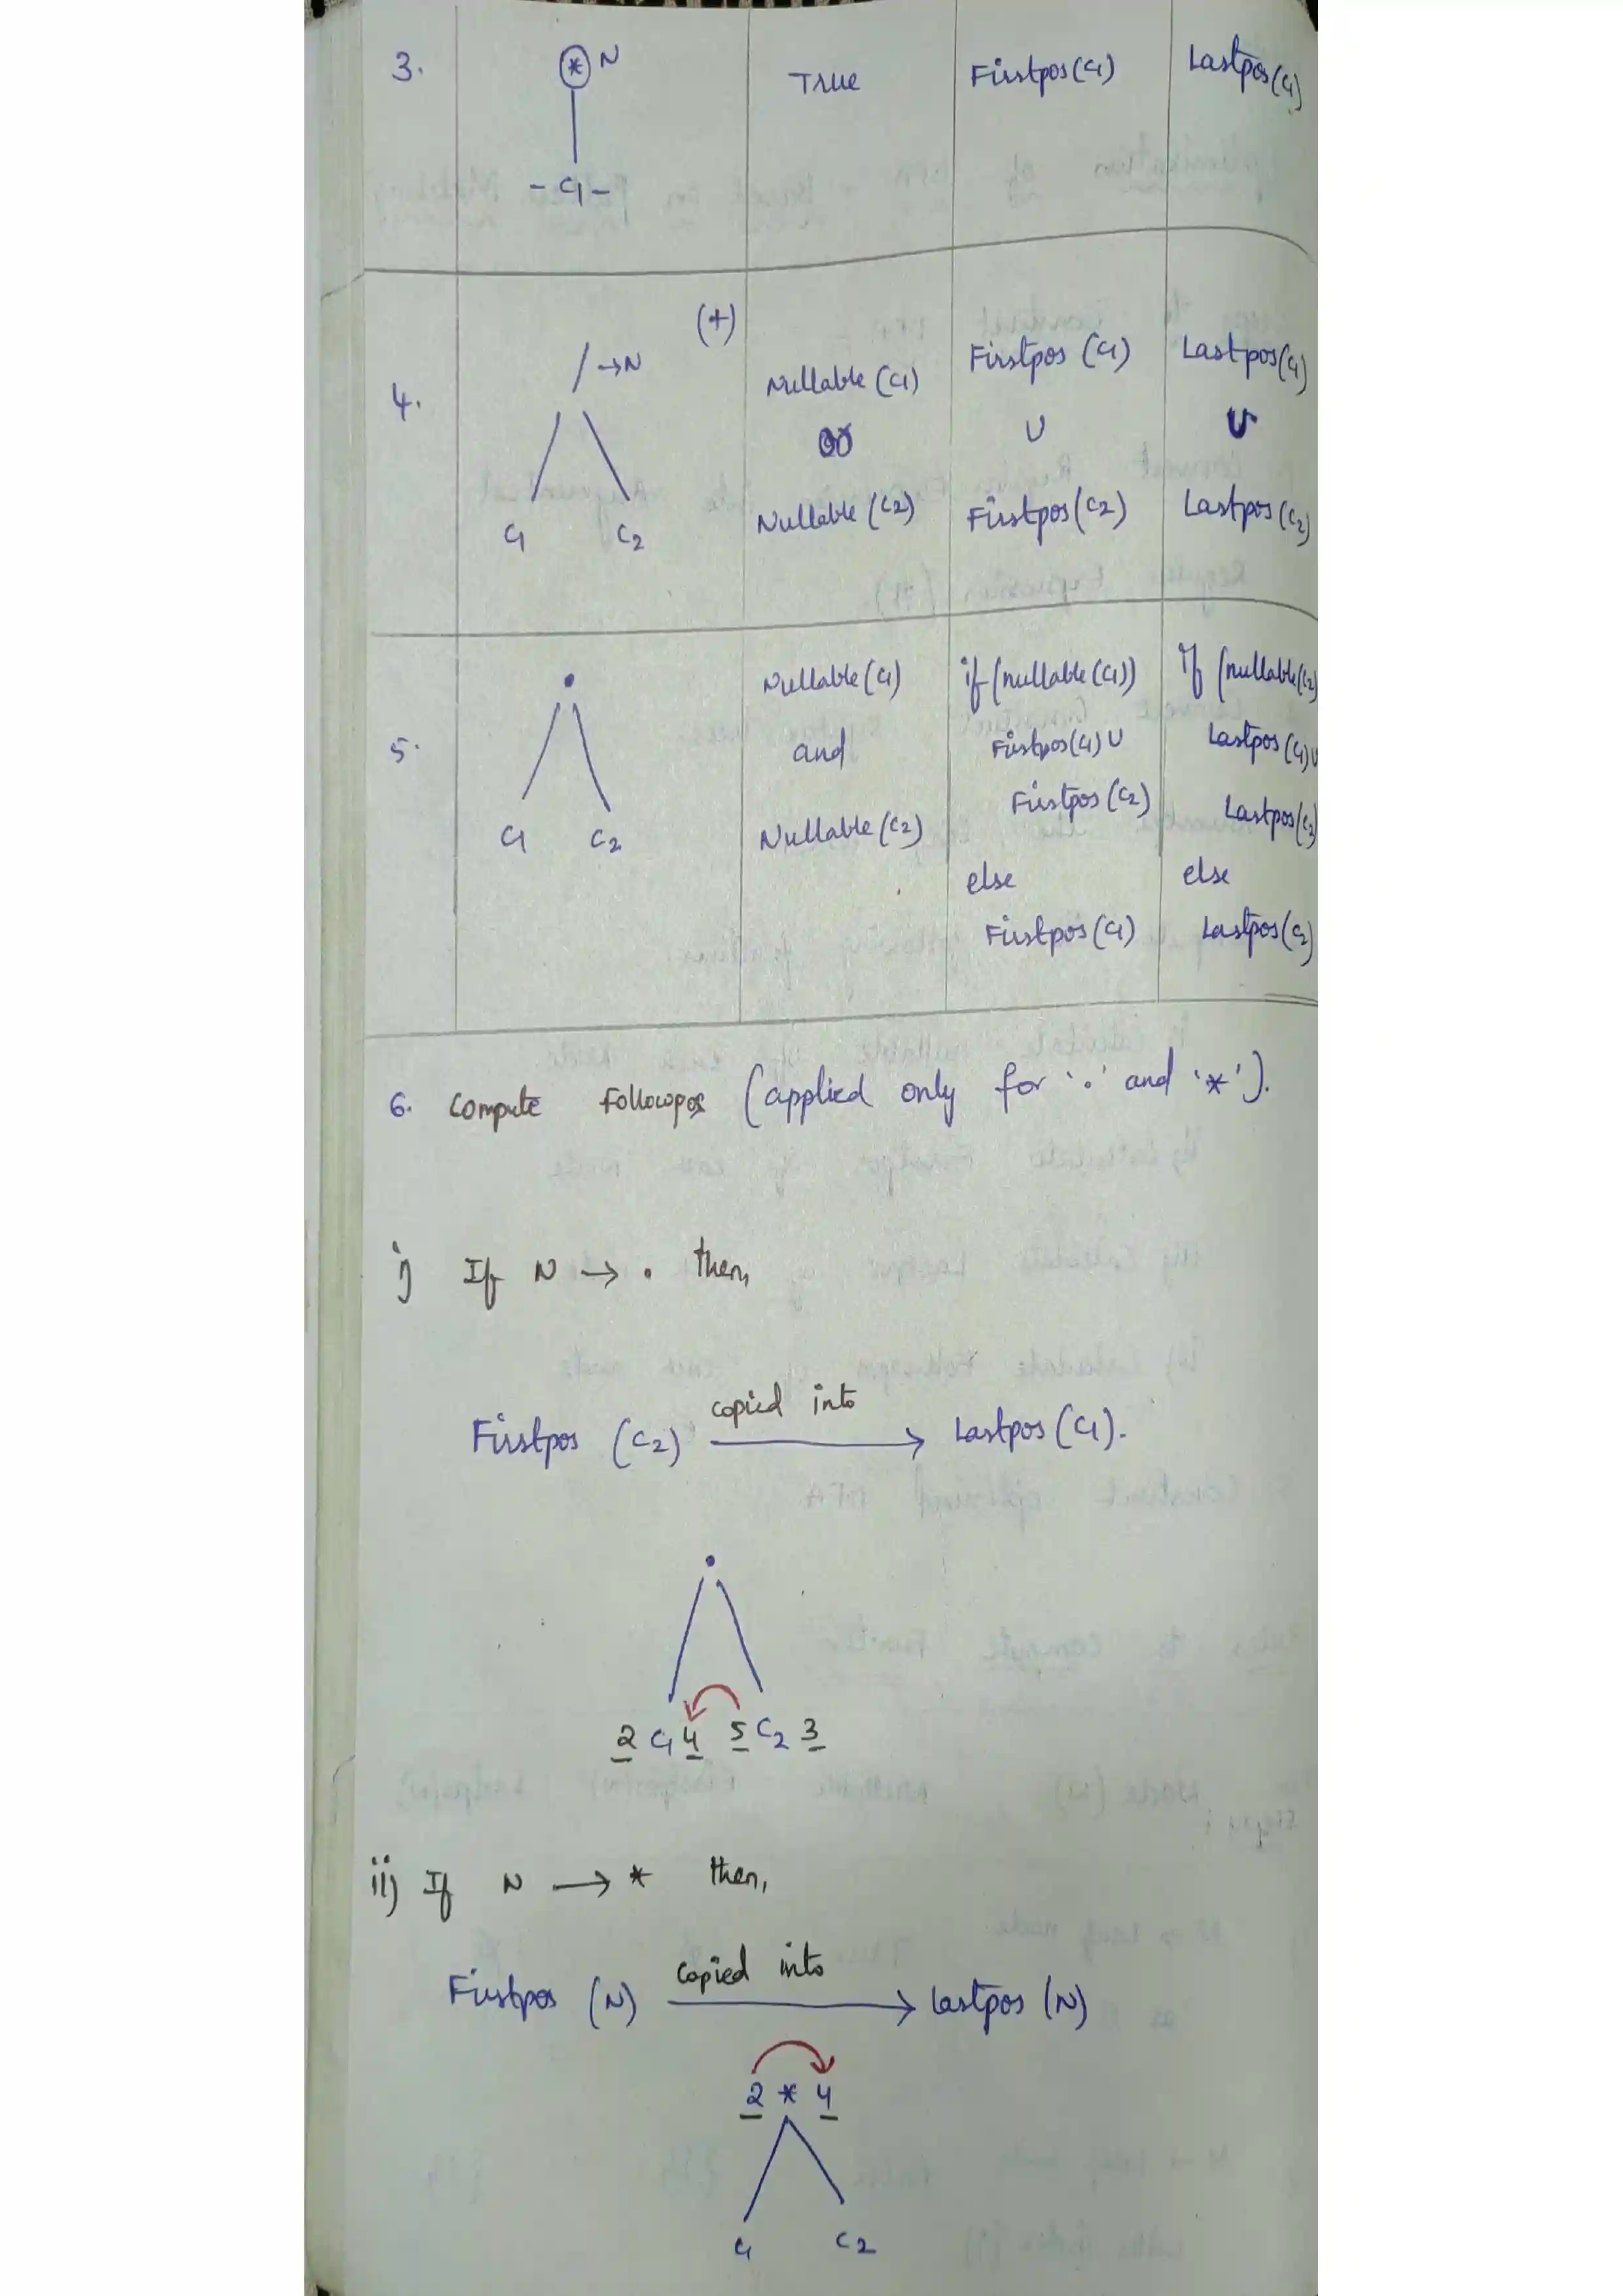 3. * N True Firstpos(C1) Lastpos(C1)
- C1 -
(+)
4. / → N Nullable (C1) Firstpos (C1) Lastpos(C1)
or U U
C1 C2 Nullable (C2) Firstpos(C2) Lastpos(C2)
5. • Nullable(C1) if(nullable(C1)) if (nullable(C2)
and Firstpos(C1) U Lastpos(C1) U
C1 C2 Nullable(C2) Firstpos(C2) Lastpos(C2)
else else
Firstpos(C1) Lastpos(C2)
6. Compute Followpos (applied only for '.' and '*').
i) If N → • then,
Firstpos (C2) copied into → Lastpos(C1).
•
2 C1 4 5 C2 3
ii) If N → * then,
Firstpos (N) copied into → Lastpos (N)
2 * 4
C1 C2